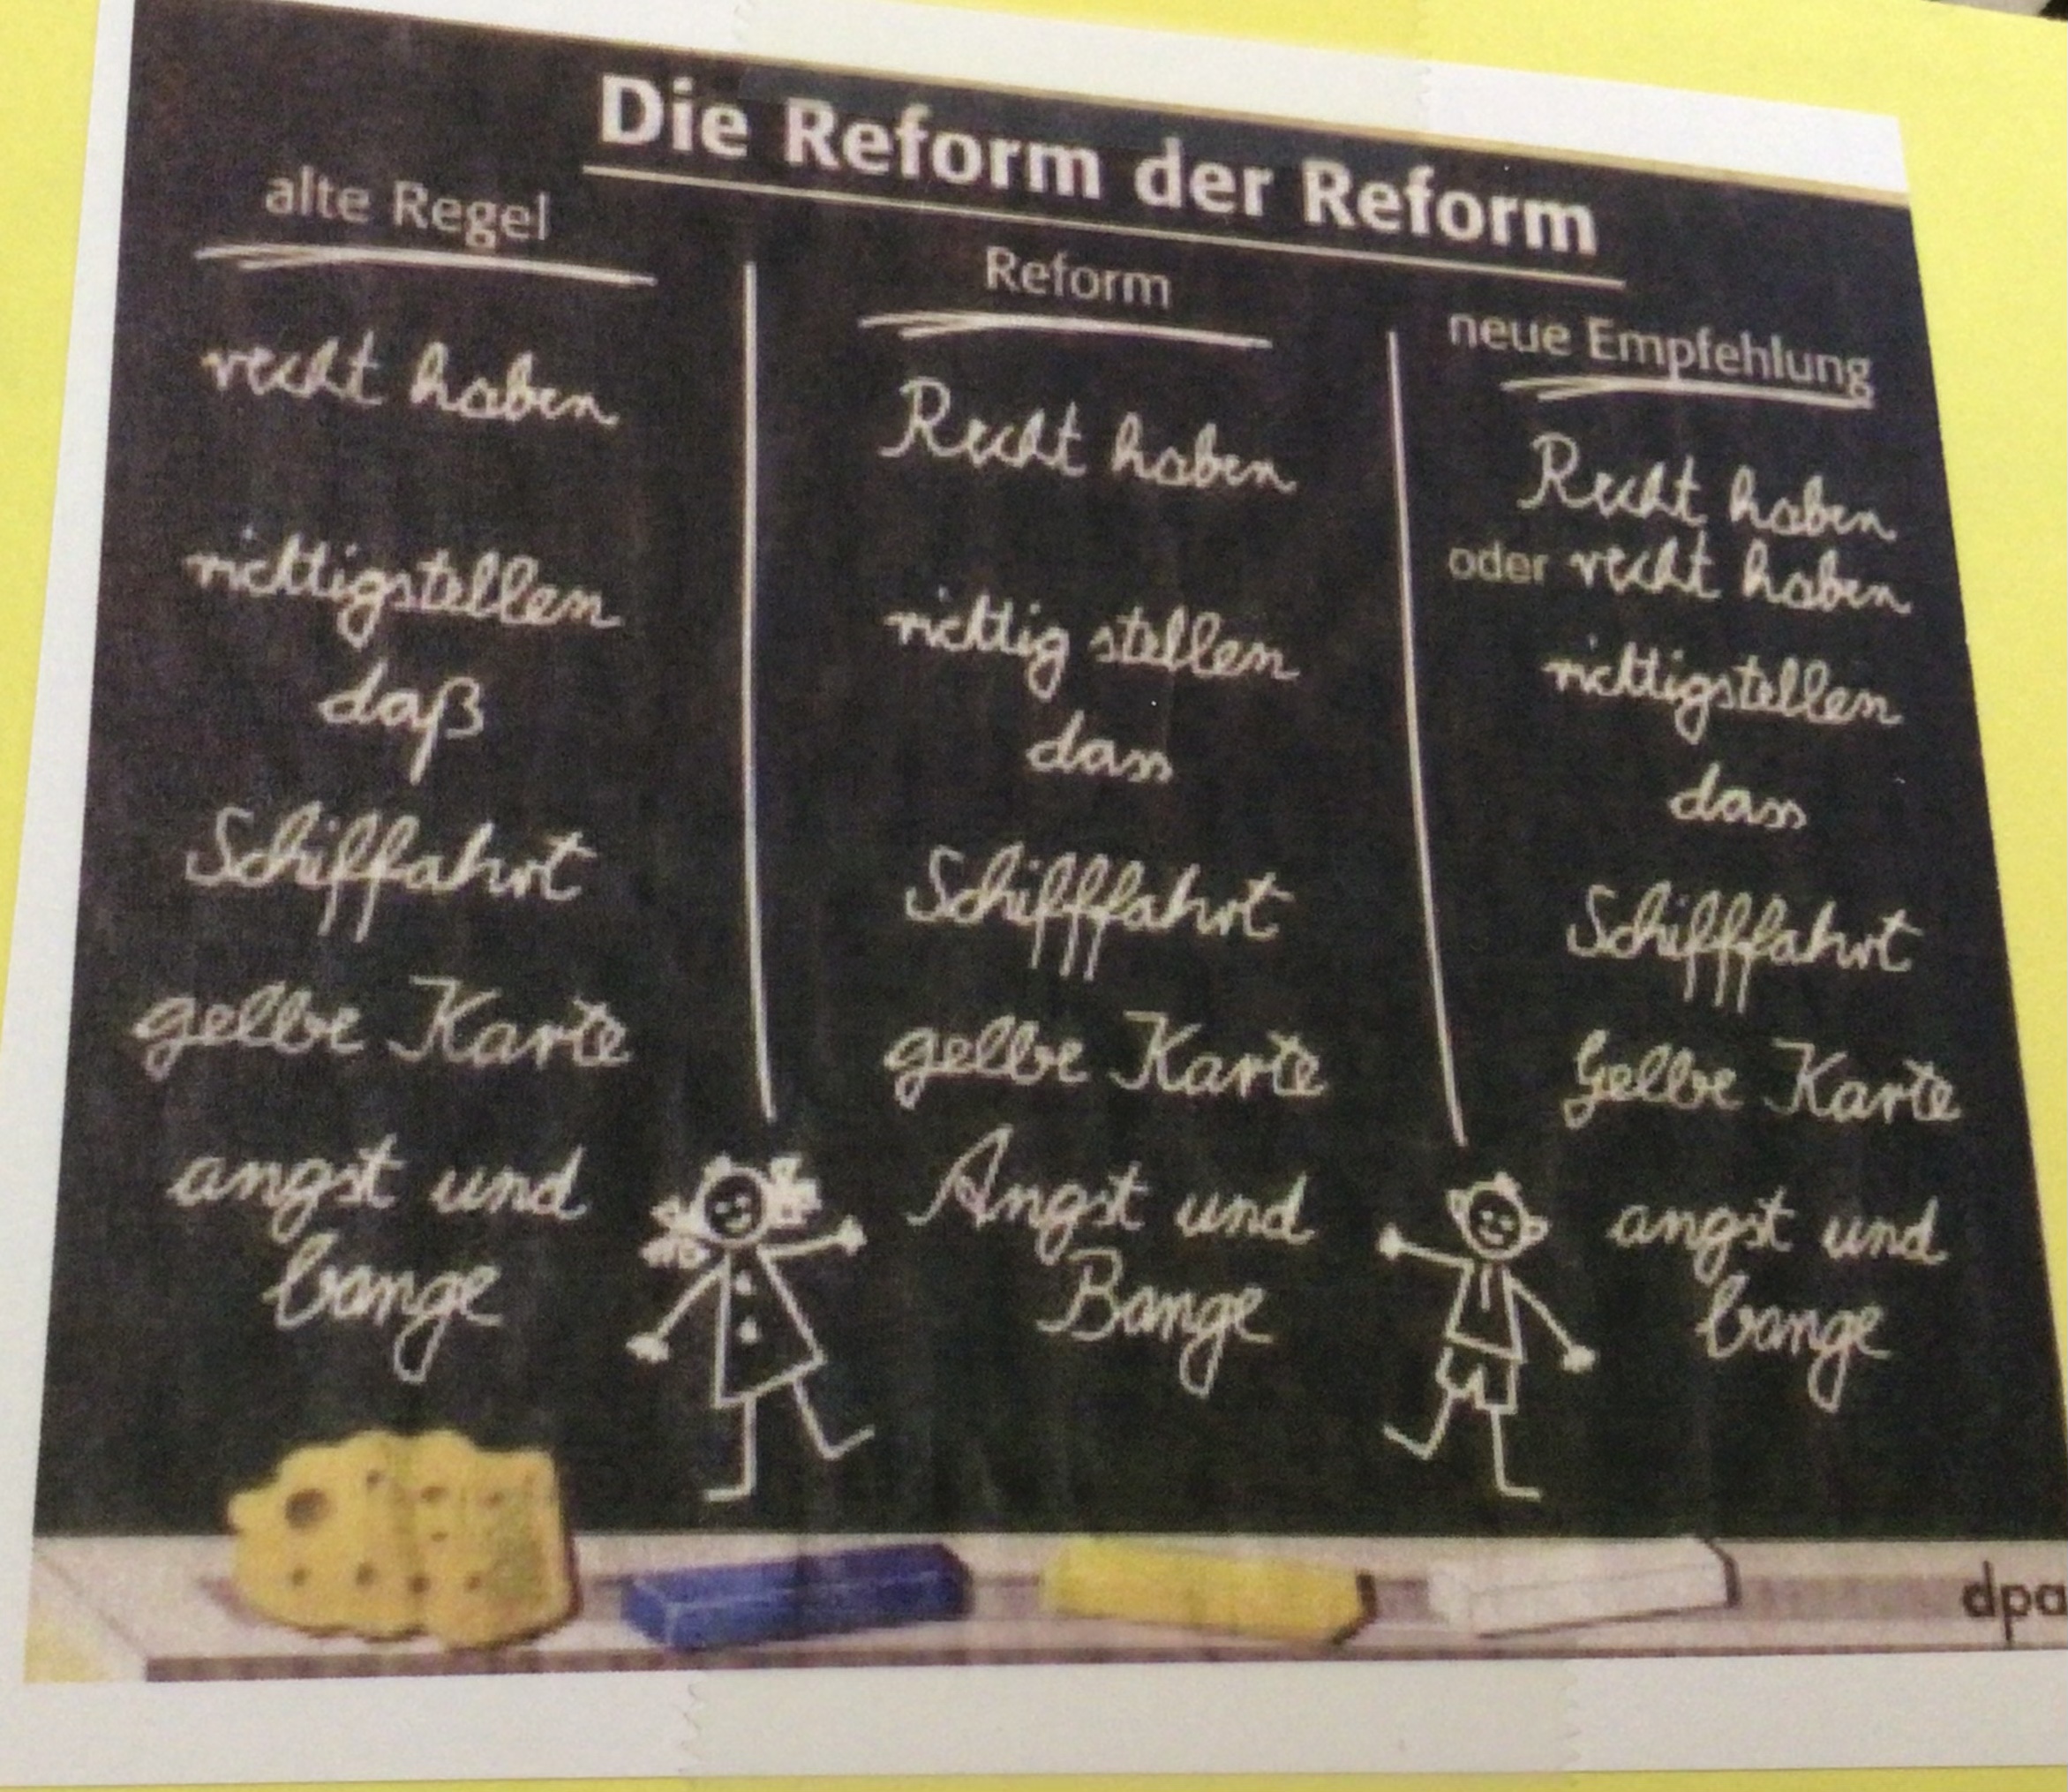 Die Reform der Reform
alte Regel
recht haben
richtigstellen
daß
Schiffahrt
gelbe Karte
angst und
bange
Reform
Recht haben
richtig stellen
dass
Schifffahrt
gelbe Karte
Angst und
Bange
neue Empfehlung
Recht haben
oder recht haben
richtigstellen
dass
Schifffahrt
Gelbe Karte
angst und
bange
dpa